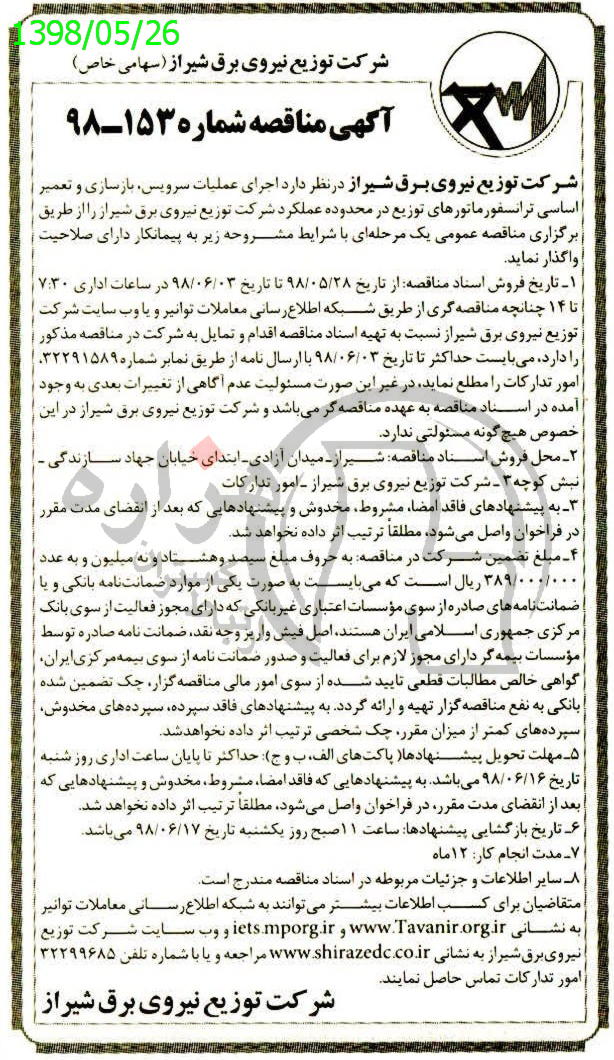 1398/05/26
شرکت توزیع نیروی برق شیراز (سهامی خاص)
آگهی مناقصه شماره ۱۵۳ـ۹۸
شرکت توزیع نیروی برق شیراز درنظر دارد اجرای عملیات سرویس، بازسازی و تعمیر
اساسی ترانسفورماتورهای توزیع در محدوده عملکرد شرکت توزیع نیروی برق شیراز را از طریق
برگزاری مناقصه عمومی یک مرحله‌ای با شرایط مشروحه زیر به پیمانکار دارای صلاحیت
واگذار نماید.
۱ـ تاریخ فروش اسناد مناقصه: از تاریخ ۹۸/۰۵/۲۸ تا تاریخ ۹۸/۰۶/۰۳ در ساعات اداری ۷:۳۰
تا ۱۴ چنانچه مناقصه‌گری از طریق شبکه اطلاع‌رسانی معاملات توانیر و یا وب سایت شرکت
توزیع نیروی برق شیراز نسبت به تهیه اسناد مناقصه اقدام و تمایل به شرکت در مناقصه مذکور
را دارد، می‌بایست حداکثر تا تاریخ ۹۸/۰۶/۰۳ با ارسال نامه از طریق نمابر شماره ۳۲۲۹۱۵۸۹،
امور تدارکات را مطلع نماید، در غیر این صورت مسئولیت عدم آگاهی از تغییرات بعدی به وجود
آمده در اسناد مناقصه به عهده مناقصه‌گر می‌باشد و شرکت توزیع نیروی برق شیراز در این
خصوص هیچ‌گونه مسئولتی ندارد.
۲ـ محل فروش اسناد مناقصه: شیراز ـ میدان آزادی ـ ابتدای خیابان جهاد سازندگی ـ
نبش کوچه ۳ ـ شرکت توزیع نیروی برق شیراز ـ امور تدارکات
۳ـ به پیشنهادهای فاقد امضا، مشروط، مخدوش و پیشنهادهایی که بعد از انقضای مدت مقرر
در فراخوان واصل می‌شود، مطلقاً ترتیب اثر داده نخواهد شد.
۴ـ مبلغ تضمین شرکت در مناقصه: به حروف مبلغ سیصد و هشتاد و نه میلیون و به عدد
۳۸۹/۰۰۰/۰۰۰ ریال است که می‌بایست به صورت یکی از موارد ضمانت‌نامه بانکی و یا
ضمانت‌نامه‌های صادره از سوی مؤسسات اعتباری غیربانکی که دارای مجوز فعالیت از سوی بانک
مرکزی جمهوری اسلامی ایران هستند، اصل فیش واریز وجه نقد، ضمانت نامه صادره توسط
مؤسسات بیمه‌گر دارای مجوز لازم برای فعالیت و صدور ضمانت نامه از سوی بیمه مرکزی ایران،
گواهی خالص مطالبات قطعی تایید شده از سوی امور مالی مناقصه‌گزار، چک تضمین شده
بانکی به نفع مناقصه‌گزار تهیه و ارائه گردد. به پیشنهادهای فاقد سپرده، سپرده‌های مخدوش،
سپرده‌های کمتر از میزان مقرر، چک شخصی ترتیب اثر داده نخواهدشد.
۵ـ مهلت تحویل پیشنهادها( پاکت‌های الف، ب و ج): حداکثر تا پایان ساعت اداری روز شنبه
تاریخ ۹۸/۰۶/۱۶ می‌باشد. به پیشنهادهایی که فاقد امضا، مشروط، مخدوش و پیشنهادهایی که
بعد از انقضای مدت مقرر، در فراخوان واصل می‌شود، مطلقاً ترتیب اثر داده نخواهد شد.
۶ـ تاریخ بازگشایی پیشنهادها: ساعت ۱۱صبح روز یکشنبه تاریخ ۹۸/۰۶/۱۷ می‌باشد.
۷ـ مدت انجام کار: ۱۲ماه
۸ـ سایر اطلاعات و جزئیات مربوطه در اسناد مناقصه مندرج است.
متقاضیان برای کسب اطلاعات بیشتر می‌توانند به شبکه اطلاع‌رسانی معاملات توانیر
به نشانی www.Tavanir.org.ir و iets.mporg.ir و وب سایت شرکت توزیع
نیروی برق شیراز به نشانی www.shirazedc.co.ir مراجعه و یا با شماره تلفن ۳۲۲۹۹۶۸۵
امور تدارکات تماس حاصل نمایند.
شرکت توزیع نیروی برق شیراز
هزاره